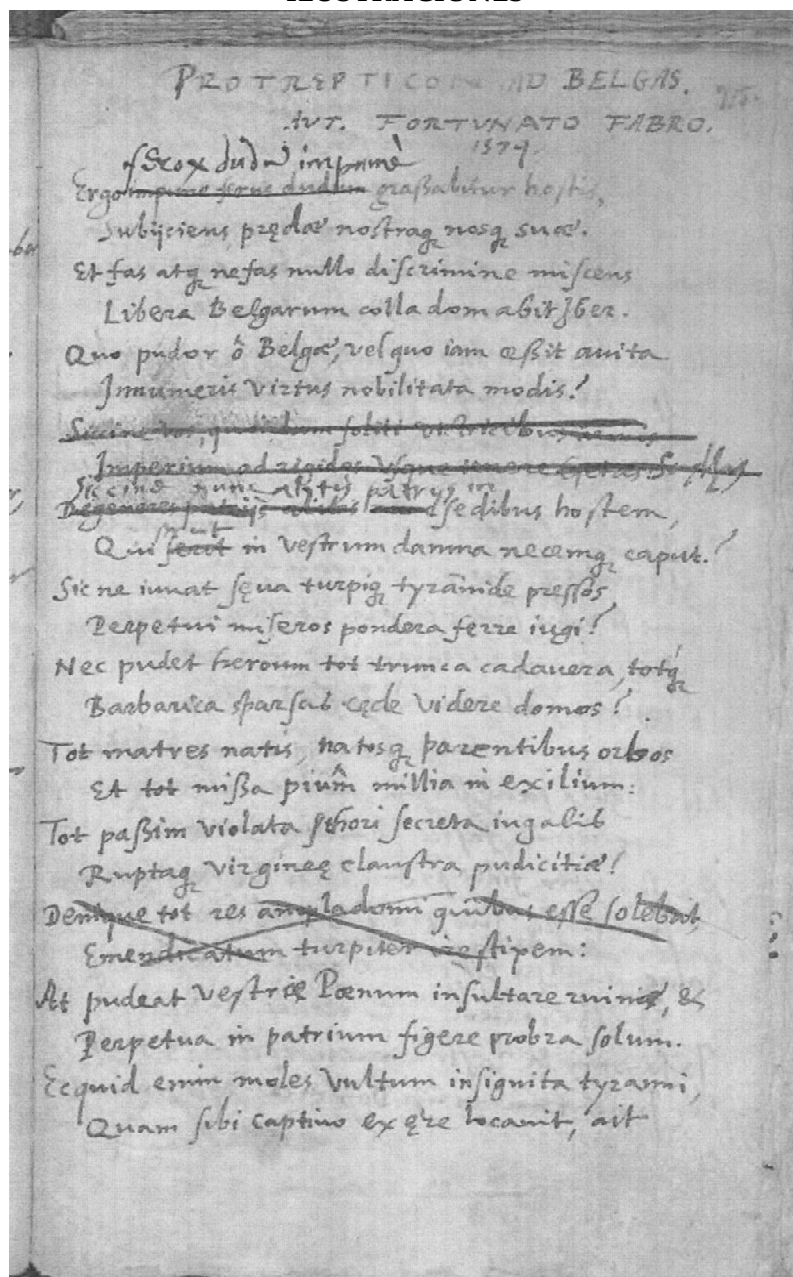 ILUSTRACIONES
PROTREPTICON AD BELGAS.
AUT. FORTUNATO FABRO.
1574.
ferox dudũ impunè
Ergo impune ferus dudum graßabitur hostis,
Subijciens prędæ nostraq nosq suæ.
Et fas atq nefas nullo discrimine miscens
Libera Belgarum colla domabit Iber.
Quo pudor ô Belgæ, vel quo iam ceßit auita
Innumeris virtus nobilitata modis?
Siccine vos, quondam soliti victricibus armis
Imperium ad rigidos
Siccine nunc alitis patrijs in
Degeneres patrijs alitis sedibus hostem,
ruit
Qui ferit in vestrum damna necemq caput?
Sic ne iuuat sęua turpiq tyrãnide pressos
Perpetui miseros pondera ferre iugi?
Nec pudet heroum tot trunca cadauera, totq
Barbarica sparsas cęde videre domos?
Tot matres natis, natosq parentibus orbos
Et tot mißa piûm millia in exilium:
Tot paßim violata thori secreta iugalis
Ruptaq virgineę claustra pudicitiæ?
Denique tot res ampla domi quibus esse solebat,
Emendicatum turpiter ire stipem:
At pudeat vestrię Pœnum insultare ruinis, &
Perpetua in patrium figere probra solum.
Ecquid enim moles vultum insignita tyranni,
Quam sibi captiuo ex ęre locauit, ait